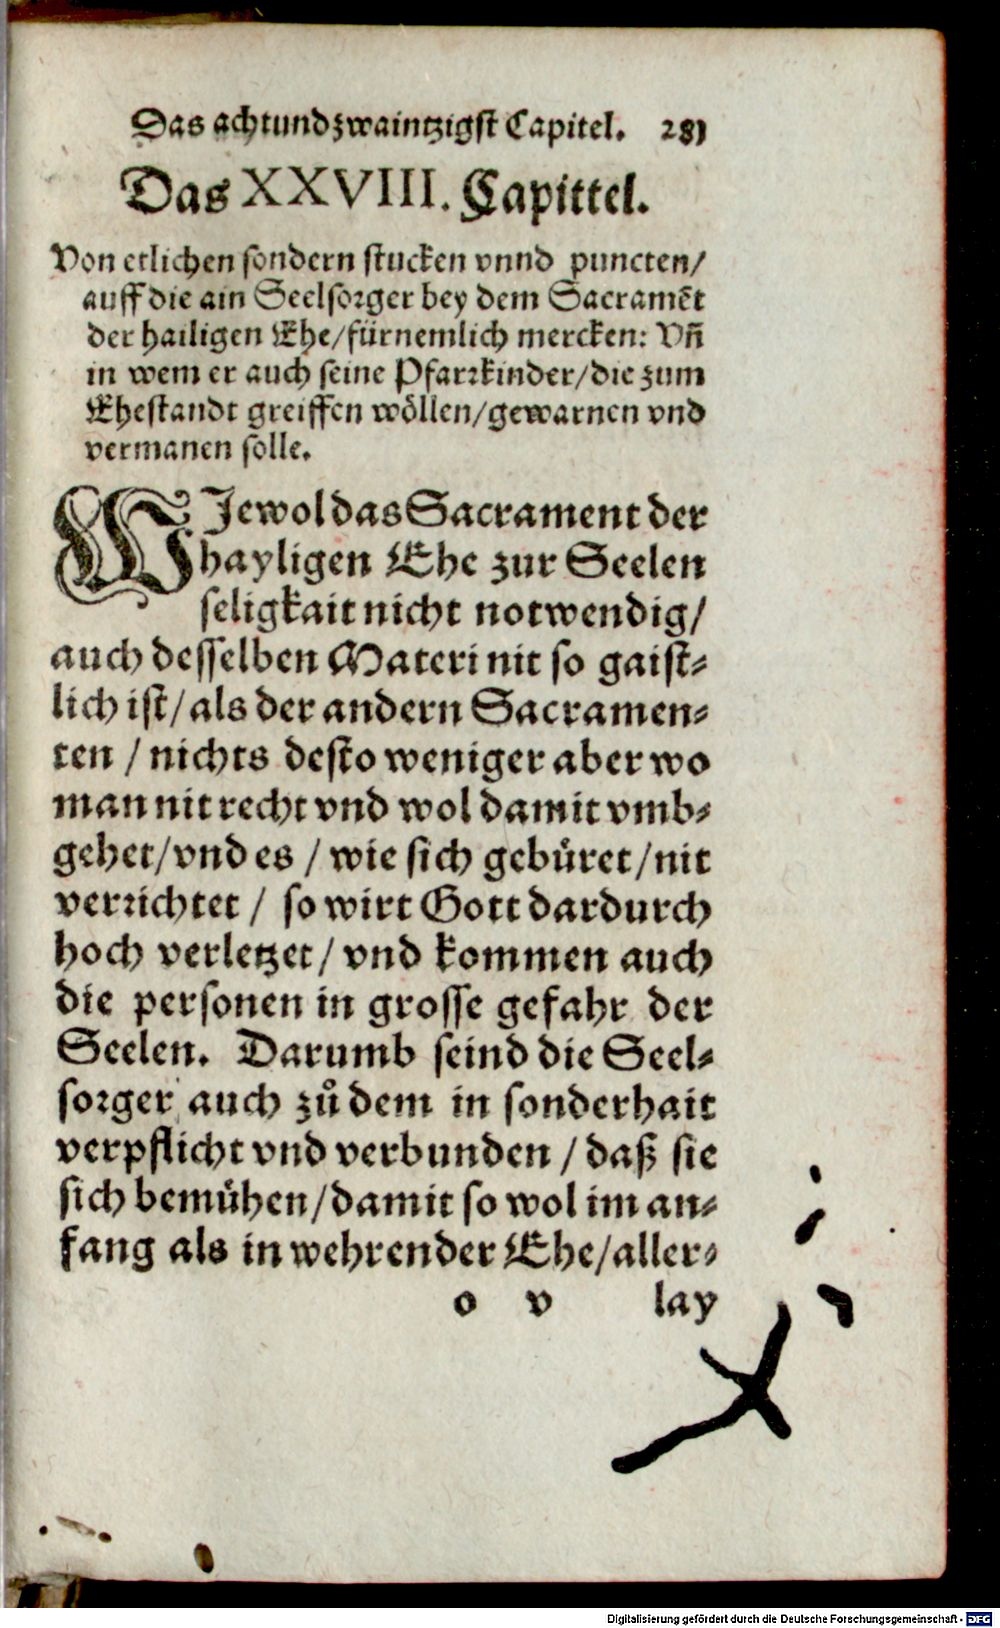 Das achtundzwaintzigst Capitel. 281
Das XXVIII. Capittel.
Von etlichen sondern stucken vnnd puncten/
auff die ain Seelsorger bey dem Sacramēt
der hailigen Ehe/fürnemlich mercken: Vn̄
in wem er auch seine Pfarrkinder/die zum
Ehestandt greiffen wöllen/gewarnen vnd
vermanen solle.
WJewol das Sacrament der
hayligen Ehe zur Seelen
seligkait nicht notwendig/
auch desselben Materi nit so gaist-
lich ist/als der andern Sacramen-
ten / nichts desto weniger aber wo
man nit recht vnd wol damit vmb-
gehet/vnd es / wie sich gebüret/nit
verrichtet / so wirt Gott dardurch
hoch verletzet/ vnd kommen auch
die personen in grosse gefahr der
Seelen. Darumb seind die Seel-
sorger auch zů dem in sonderhait
verpflicht vnd verbunden / daß sie
sich bemühen/damit so wol im an-
fang als in wehrender Ehe/aller-
o v lay
Digitalisierung gefördert durch die Deutsche Forschungsgemeinschaft - DFG